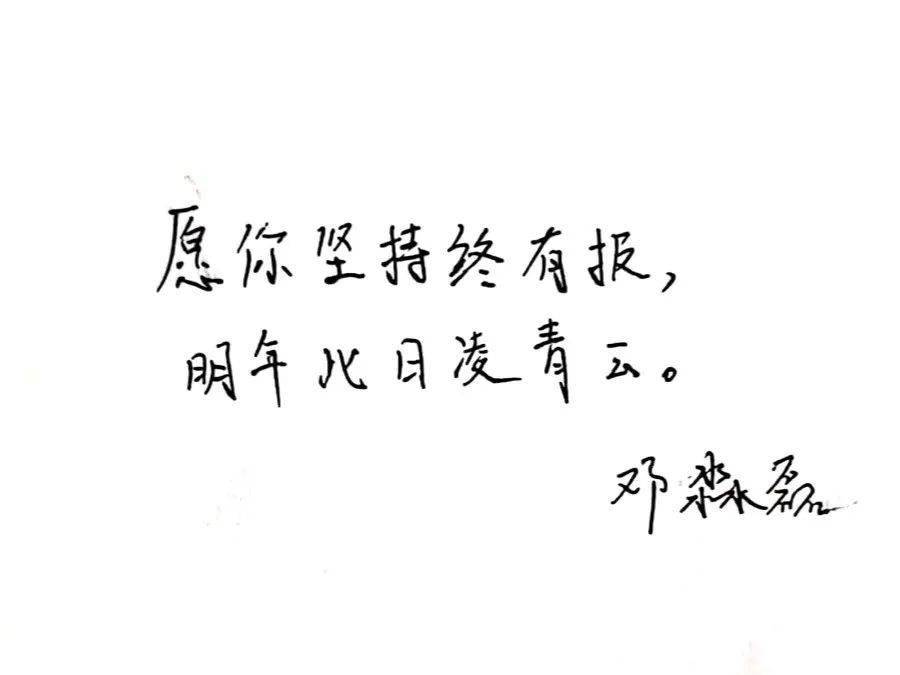 愿你坚持终有报，
明年此日凌青云。
邓淼磊